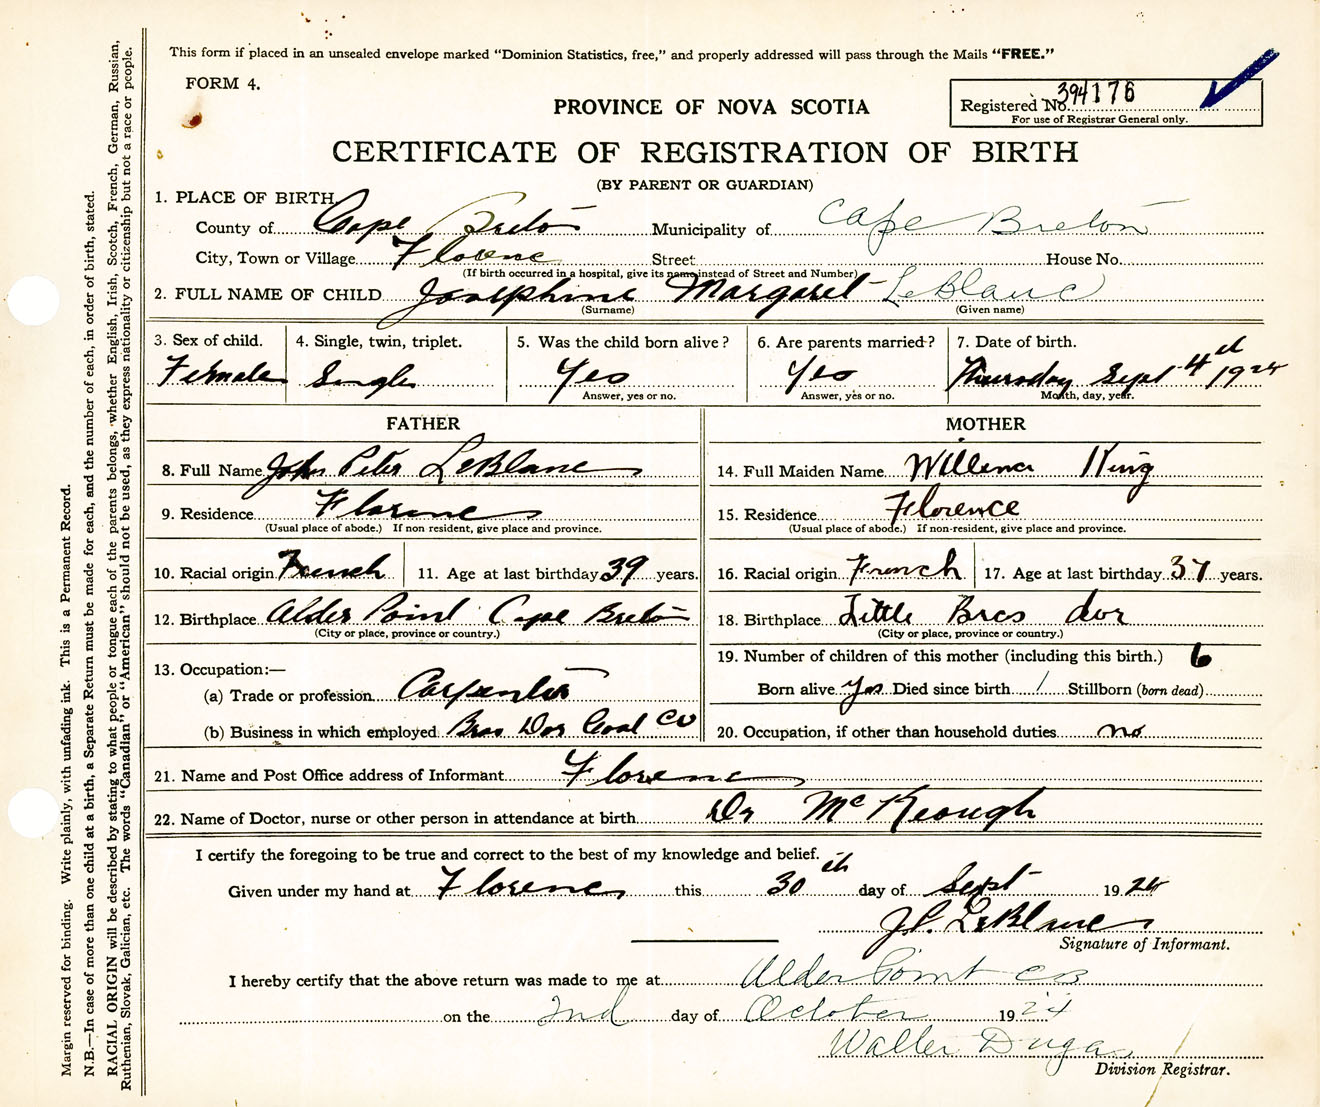 This form if placed in an unsealed envelope marked “Dominion Statistics, free,” and properly addressed will pass through the Mails “FREE.”
FORM 4.
Registered No. 394176
For use of Registrar General only.
PROVINCE OF NOVA SCOTIA
CERTIFICATE OF REGISTRATION OF BIRTH
(BY PARENT OR GUARDIAN)
1. PLACE OF BIRTH
County of Cape Breton Municipality of Cape Breton
City, Town or Village Florence Street House No.
(If birth occurred in a hospital, give its name instead of Street and Number)
2. FULL NAME OF CHILD Josephine Margaret LeBlanc
(Surname) (Given name)
3. Sex of child. 4. Single, twin, triplet. 5. Was the child born alive? 6. Are parents married? 7. Date of birth.
Female Single Yes Yes Thursday Sept 4th 1924
Answer, yes or no. Answer, yes or no. Month, day, year.
FATHER MOTHER
8. Full Name John Peter LeBlanc 14. Full Maiden Name Willena King
9. Residence Florence 15. Residence Florence
(Usual place of abode.) If non resident, give place and province. (Usual place of abode.) If non-resident, give place and province.
10. Racial origin French 11. Age at last birthday 39 years. 16. Racial origin French 17. Age at last birthday 37 years.
12. Birthplace Alder Point Cape Breton 18. Birthplace Little Bras dor
(City or place, province or country.) (City or place, province or country.)
13. Occupation:— 19. Number of children of this mother (including this birth.) 6
(a) Trade or profession Carpenter Born alive yes Died since birth 1 Stillborn (born dead)
(b) Business in which employed Bras Dor Coal Co 20. Occupation, if other than household duties no
21. Name and Post Office address of Informant Florence
22. Name of Doctor, nurse or other person in attendance at birth Dr McKeough
I certify the foregoing to be true and correct to the best of my knowledge and belief.
Given under my hand at Florence this 30th day of Sept 1924
J.P. LeBlanc
Signature of Informant.
I hereby certify that the above return was made to me at Alder Point CB
on the 2nd day of October 1924
Walter Dugas
Division Registrar.
Margin reserved for binding. Write plainly, with unfading ink. This is a Permanent Record.
N.B.—In case of more than one child at a birth, a Separate Return must be made for each, and the number of each, in order of birth, stated.
RACIAL ORIGIN will be described by stating to what people or tongue each of the parents belongs, whether English, Irish, Scotch, French, German, Russian,
Ruthenian, Slovak, Galician, etc. The words “Canadian” or “American” should not be used, as they express nationality or citizenship but not a race or people.